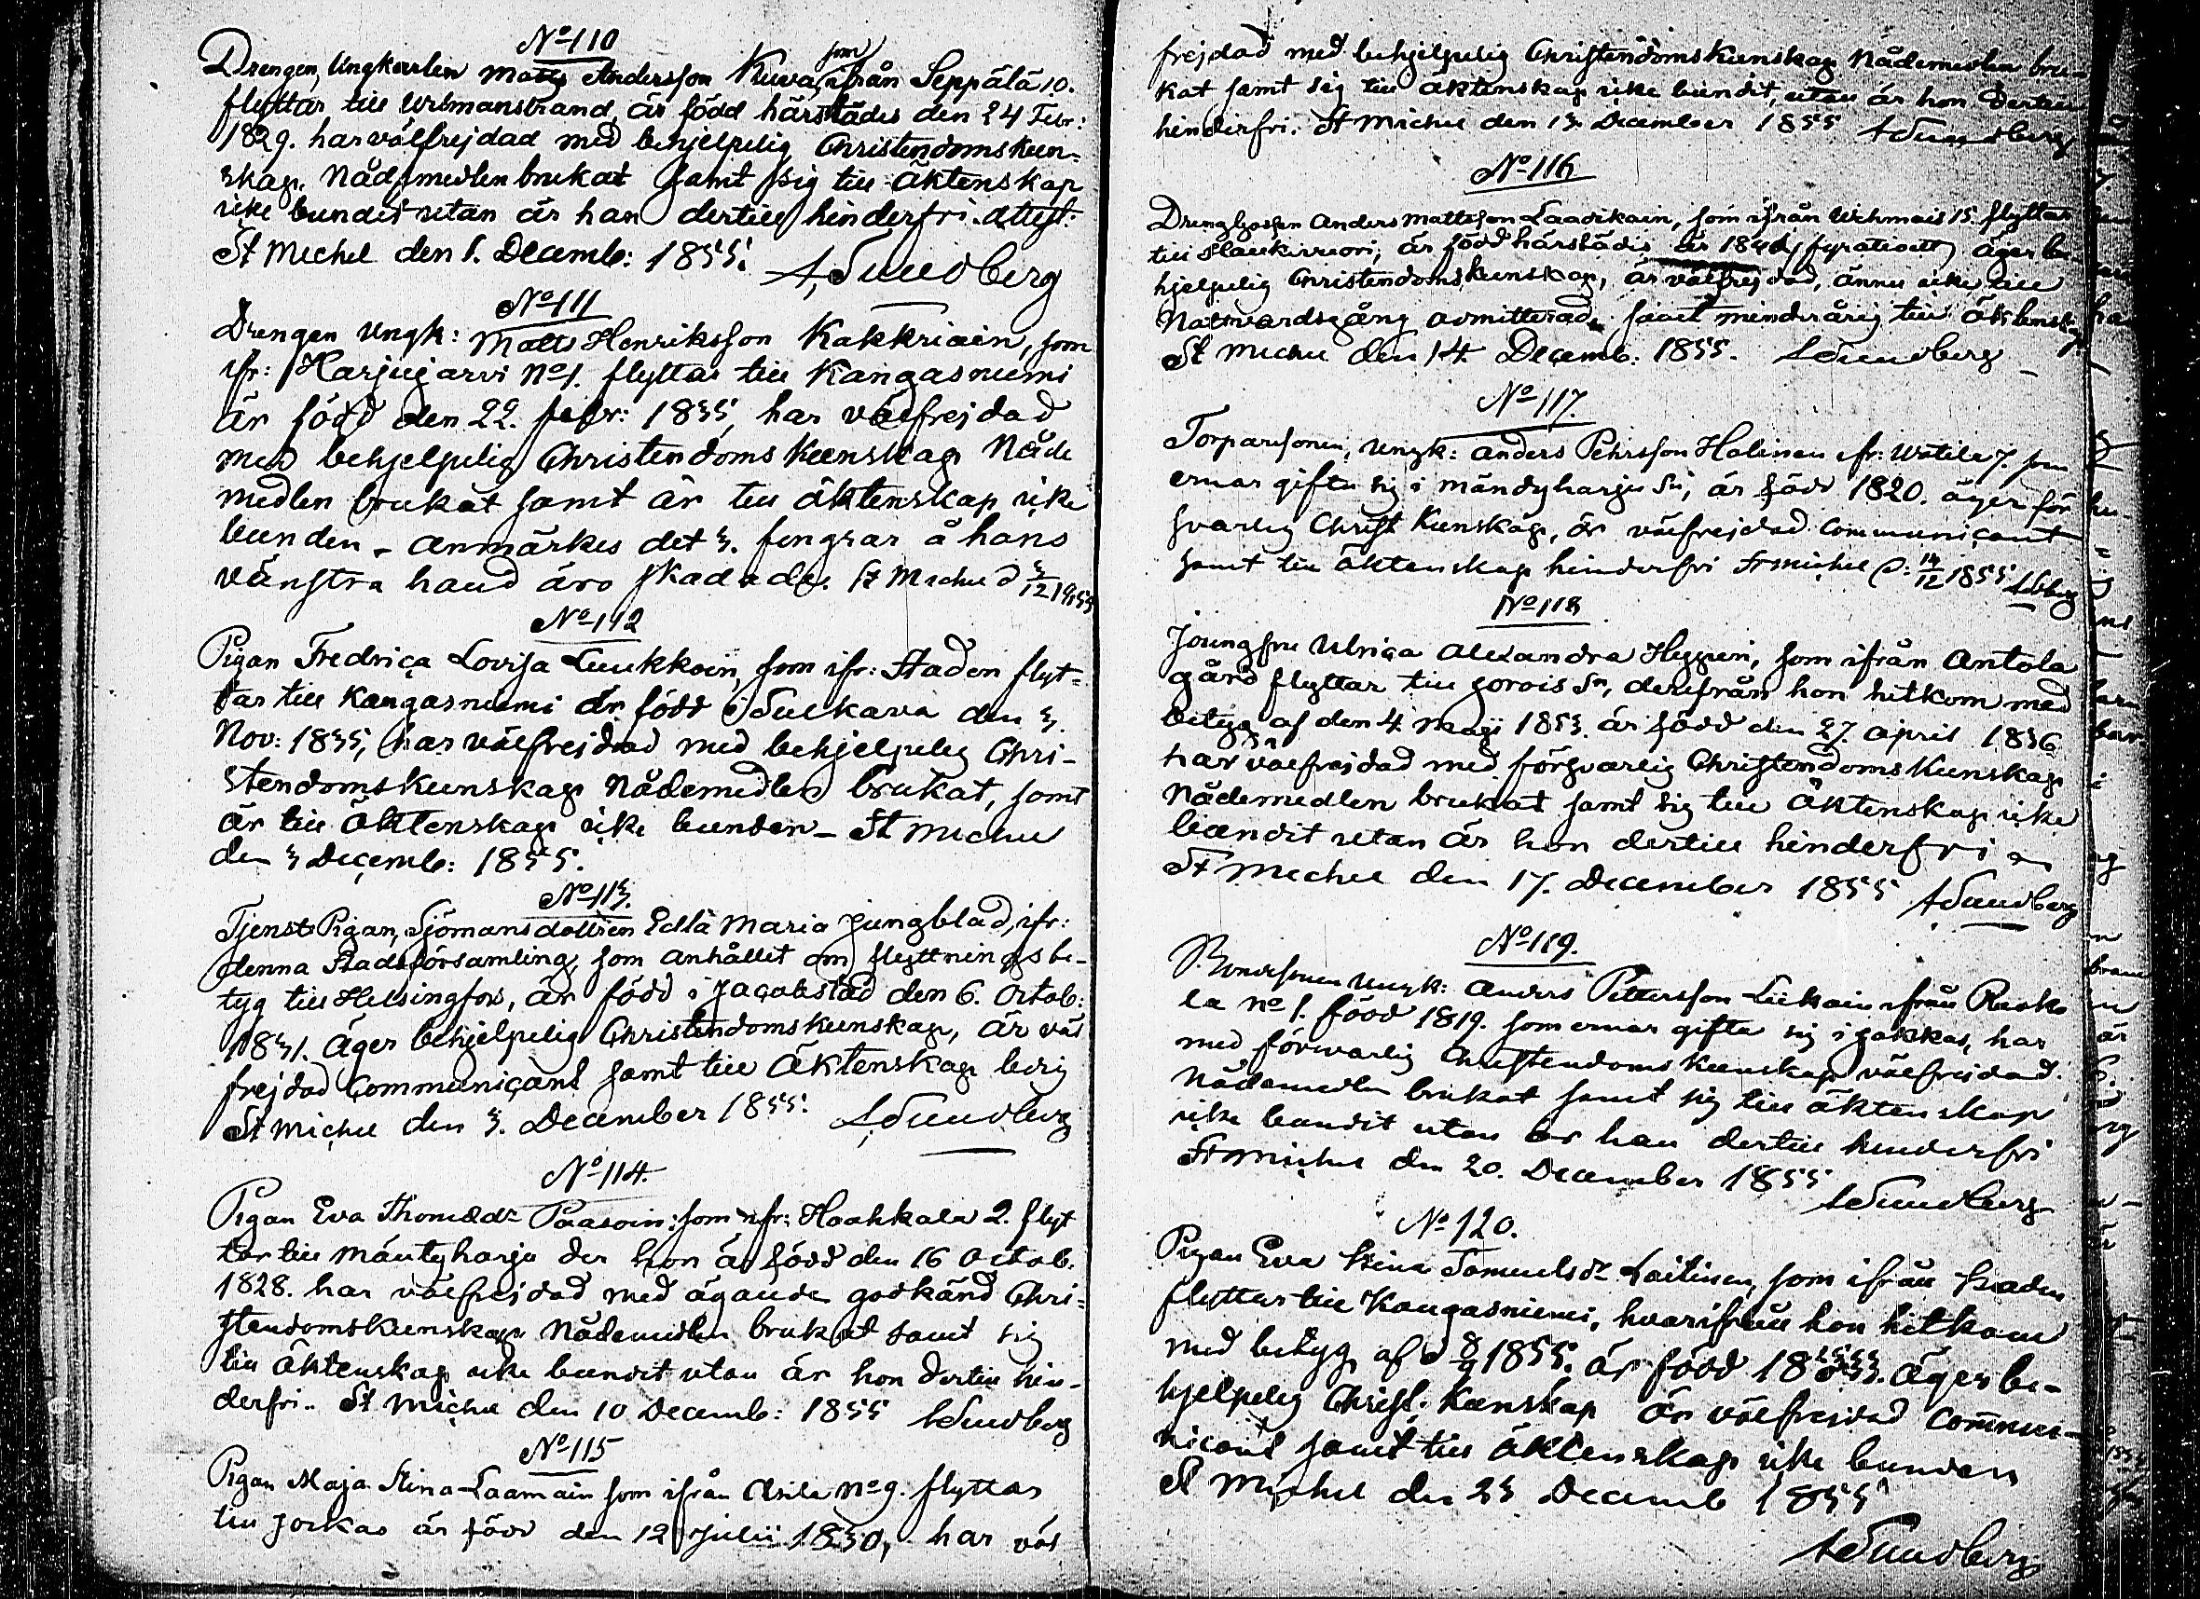 No 110
Drengen, Ungkarlen Matts Andersson Kuva, som ifrån Seppälä 10.
flyttar till Wilmanstrand, är född härstädes den 24 Febr:
1829. har välfrejdad med behjelpelig Christendomskun-
skap, Nådemedlen brukat samt sig till äktenskap
icke bundit utan är han dertill hinderfri. Attest:
St Michel den 1. Decemb: 1855. ASundberg
No 111
Drengen Ungk: Matts Henriksson Kakkriain, som
ifr: Harjujarvi No 1. flyttar till Kangasniemi
är född den 22. febr: 1835, har välfrejdad
med behjelpelig Christendoms Kunskap Nåde
medlen brukat samt är till äktenskap icke
bunden - anmärkes det 3. fingrar å hans
vänstra hand äro skadade. St Michel d 3/12 1855
No 112
Pigan Fredrica Lovisa Luukkoin, som ifr: Staden flyt-
tar till Kangasniemi är född i Sulkava den 3.
Nov: 1835, har välfrejdad med behjelpelig Chri-
stendomskunskap Nådemedlen brukat, samt
är till äktenskap icke bunden - St Michel
den 3 Decemb: 1855.
No 113.
Tjenst Pigan, Sjömansdottren Edla Maria Jungblad, ifr:
denna Stadsförsamling, som anhållit om flyttningsbe-
tyg till Helsingfors, är född i Jacobstad den 6. Octob:
1831. Äger behjelpelig Christendomskunskap, är väl
frejdad Communicant samt till äktenskap ledig
St Michel den 3. December 1855. ASundberg
No 114.
Pigan Eva Thomædr Paasoin: som ifr: Haahkala 2. flyt
tar till Mäntyharju der hon är född den 16 Octob.
1828. har välfrejdad med ägande godkänd Chri-
stendomskunskap Nådemedlen brukat samt sig
till äktenskap icke bundit utan är hon dertill hin-
derfri. St Michel den 10 Decemb: 1855 ASundberg
No 115
Pigan Maja Stina Laamain som ifrån Asila No 9. flyttar
till Jockas är född den 12 Julii 1830, har väl
frejdad med behjelpelig Christendomskunskap Nådemedlen bru-
kat samt sig till äktenskap icke bundit, utan är hon dertill
hinderfri. St Michel den 13 December 1855 ASundberg
No 116
Drenggossen Anders Mattsson Laadikain, som ifrån Wihmais 15. flyttar
till, är född härstädes år 184 äger be-
hjelpelig Christendomskunskap, är välfrejdad, ännu icke till
Nattvardsgång admitterad, samt minderårig till äktenskap
St Michel den 14 Decemb: 1855. ASundberg
No 117.
Torparesonen, Ungk: Anders Pehrsson Halinen ifr: Watila 7. som
ernar gifta sig i Mändyharju Sn, är född 1820. äger för
svarlig Christ Kunskap, är välfrejdad communicant
samt till äktenskap hinderfri St Michel d: 14/12 1855 ASberg
No 118
Joungfru Ulrica Alexandra Heppen, som ifrån Antola
gård flyttar till Jorois Sn, derifrån hon hitkom med
betyg af den 4 Maji 1853. är född den 27. April 1836
har välfrejdad med försvarlig Christendoms Kunskap
Nådemedlen brukat samt sig till äktenskap icke
bundit utan är hon dertill hinderfri
St Michel den 17. December 1855 ASundberg
No 119.
Bondesonen Ungk: Anders Pettersson Liikain ifrån Rauko
la No 1. född 1819. som ernar gifta sig i Jokkas, har
med försvarlig Christendoms Kunskap välfrejdad.
Nådemedlen brukat samt sig till äktenskap
icke bundit utan är han dertill hinderfri
St Michel den 20. December 1855
ASundberg
No 120.
Pigan Eva Stina Samuelsdr Laitinen, som ifrån Staden
flyttar till Kangasniemi, hvarifrån hon hitkom
med betyg af d 8/9 1855. är född 18 äger be-
hjelpelig Christ. Kunskap är välfrejdad Commu-
nicant samt till äktenskap icke bunden
St Michel den 23 Decemb 1855
ASundberg